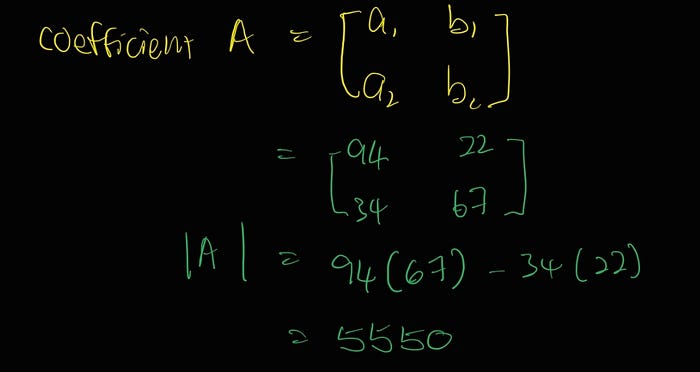 coefficient A = [a₁ b₁
a₂ b₂]
= [94 22
34 67]
|A| = 94(67) - 34(22)
= 5550